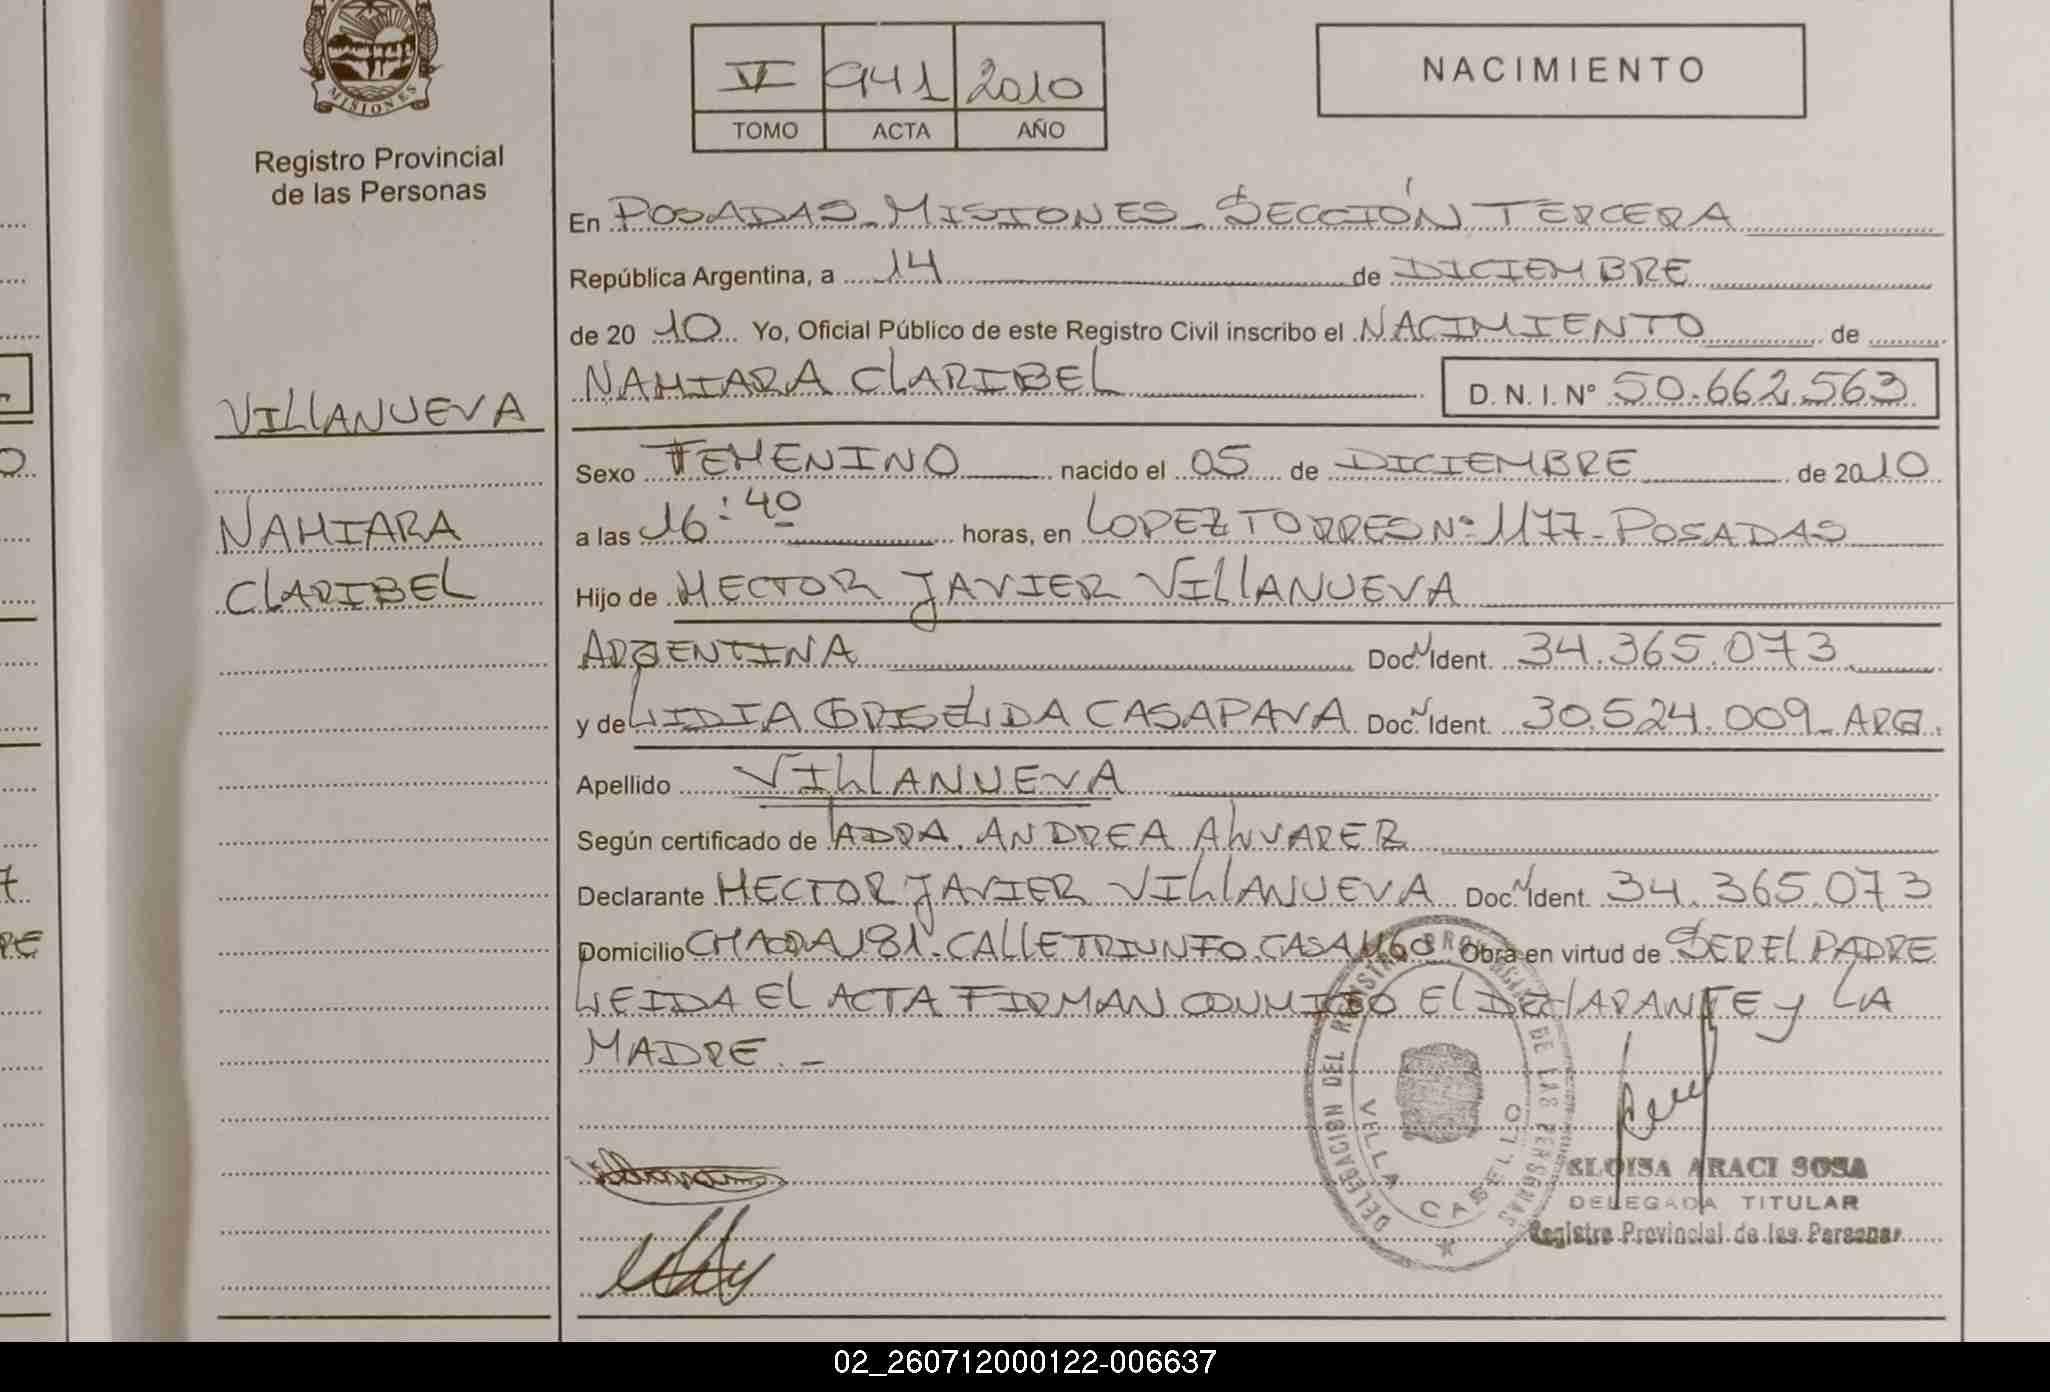 MISIONES
Registro Provincial
de las Personas
VI 941 2010
TOMO ACTA AÑO
NACIMIENTO
En POSADAS - MISIONES - SECCIÓN TERCERA
República Argentina, a 14 de DICIEMBRE
de 2010 Yo, Oficial Público de este Registro Civil inscribo el NACIMIENTO de
NAHIARA CLARIBEL D. N. I. Nº 50.662.563
VILLANUEVA
NAHIARA
CLARIBEL
Sexo FEMENINO nacido el 05 de DICIEMBRE de 2010
a las 16:40 horas, en LOPEZ TORRES Nº 1177 - POSADAS
Hijo de HECTOR JAVIER VILLANUEVA
ARGENTINA Doc. N Ident. 34.365.073
y de LIDIA GRISELIDA CASAPAVA Doc. N Ident. 30.524.009 - ARG.
Apellido VILLANUEVA
Según certificado de LA DRA. ANDREA ALVAREZ
Declarante HECTOR JAVIER VILLANUEVA Doc. N Ident. 34.365.073
Domicilio CHACRA 181. CALLE TRIUNFO. CASA Obra en virtud de SER EL PADRE
LEIDA EL ACTA FIRMAN CONMIGO EL DECLARANTE y LA
MADRE. -
DELEGACION DEL REGISTRO PROVINCIAL DE LAS PERSONAS
VILLA CABELLO
ELOISA ARACI SOSA
DELEGADA TITULAR
Registro Provincial de las Personas
02_260712000122-006637